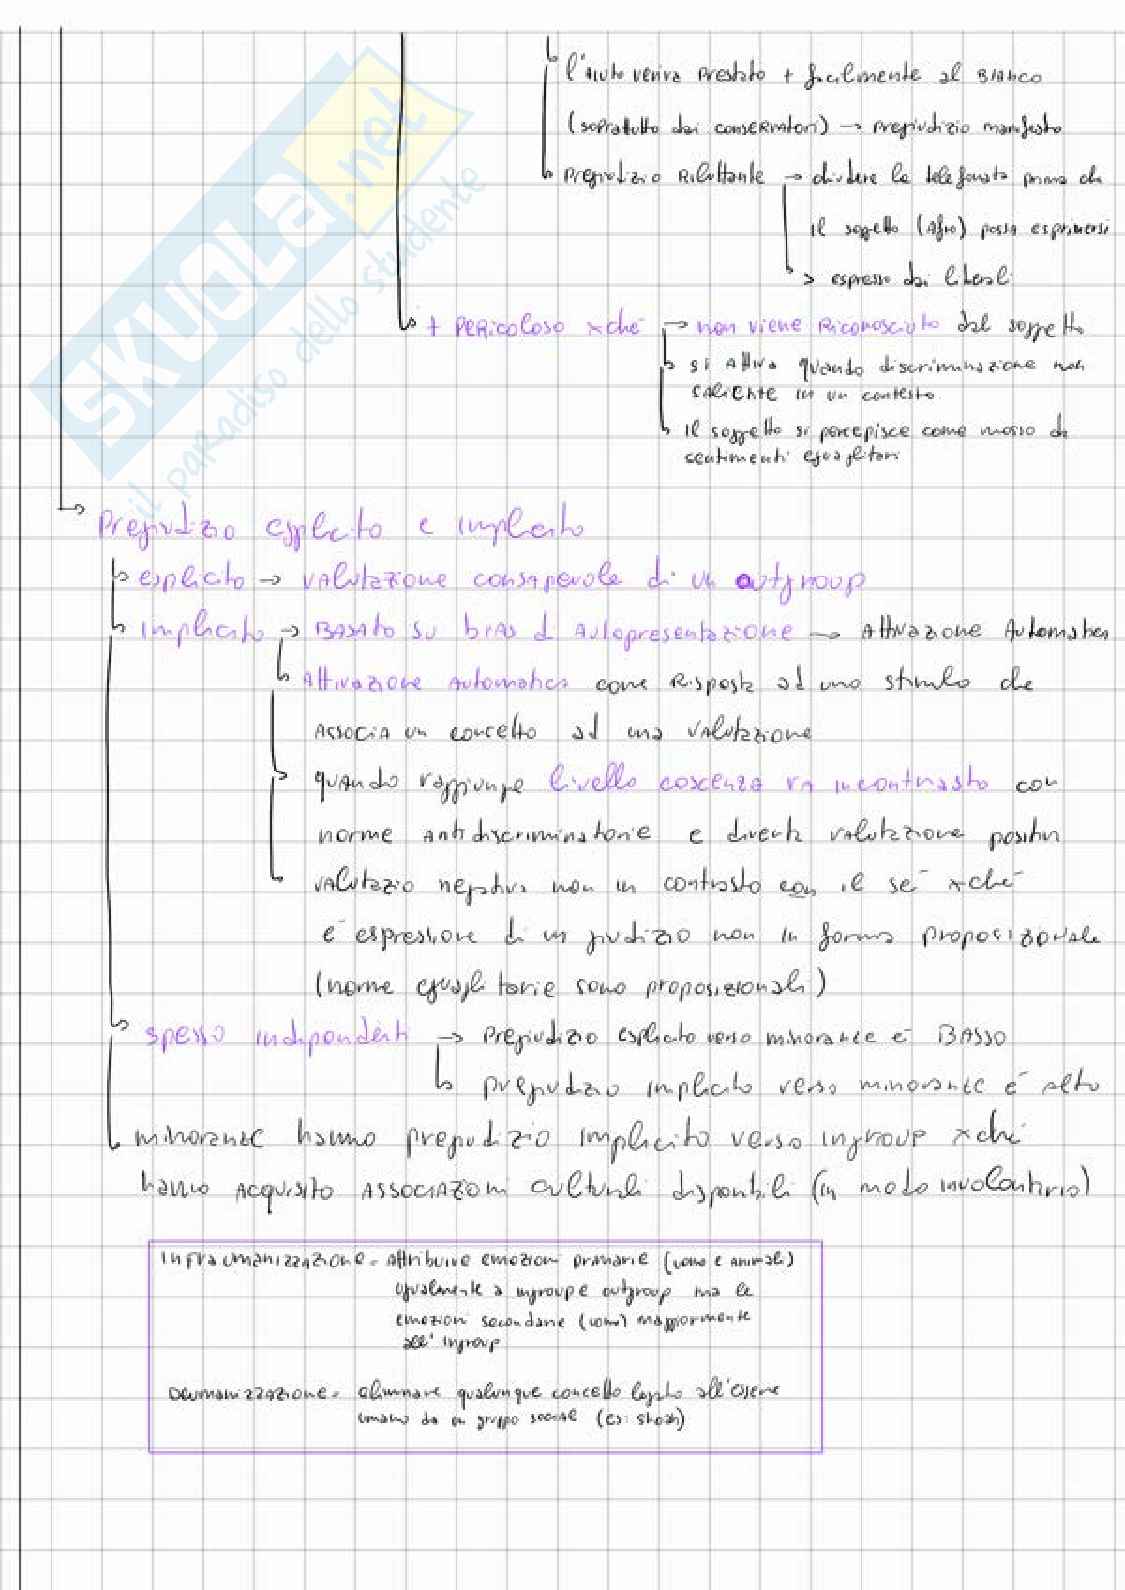 l'aiuto veniva prestato + facilmente al BIANCO
(soprattutto dai conservatori) → pregiudizio manifesto
pregiudizio Riluttante → chiudere la telefonata prima che
il soggetto (Afro) possa esprimersi
> espresso dai liberali
+ PERICOLOSO xché → non viene Riconosciuto dal soggetto
si attiva quando discriminazione non
saliente in un contesto
il soggetto si percepisce come mosso da
sentimenti egualitari
Pregiudizio esplicito e implicito
esplicito → valutazione consapevole di un outgroup
implicito → BASATO su bias di Autopresentazione → Attivazione Automatica
Attivazione automatica come Risposta ad uno stimolo che
ASSOCIA un concetto ad una valutazione
quando raggiunge livello coscenza va in contrasto con
norme antidiscriminatorie e diventa valutazione positiva
valutazio negativa non in contrasto con il sé xché
è espressione di un giudizio non in forma proposizionale
(norme egualitarie sono proposizionali)
spesso indipendenti → pregiudizio esplicito verso minoranze è BASSO
pregiudizio implicito verso minoranze è alto
minoranze hanno pregiudizio implicito verso ingroup xché
hanno acquisito associazioni culturali disponibili (in modo involontario)
infraumanizzazione = attribuire emozioni primarie (uomo e animali)
ugualmente a ingroup e outgroup ma le
emozioni secondarie (uomo) maggiormente
all'ingroup
Deumanizzazione = eliminare qualunque concetto legato all'essere
umano da un gruppo sociale (es: shoah)
SKUOLA.net
il paradiso dello studente